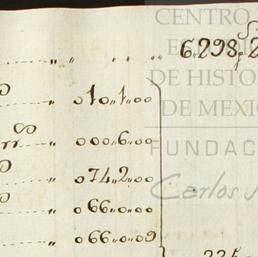 CENTRO
E
DE HISTO
DE MEXI
FUNDAC
Carlos
6.298,2
010,,1,,00
000,,6,,00
074,,2,,00
066,,0,,00
066,,0,,09